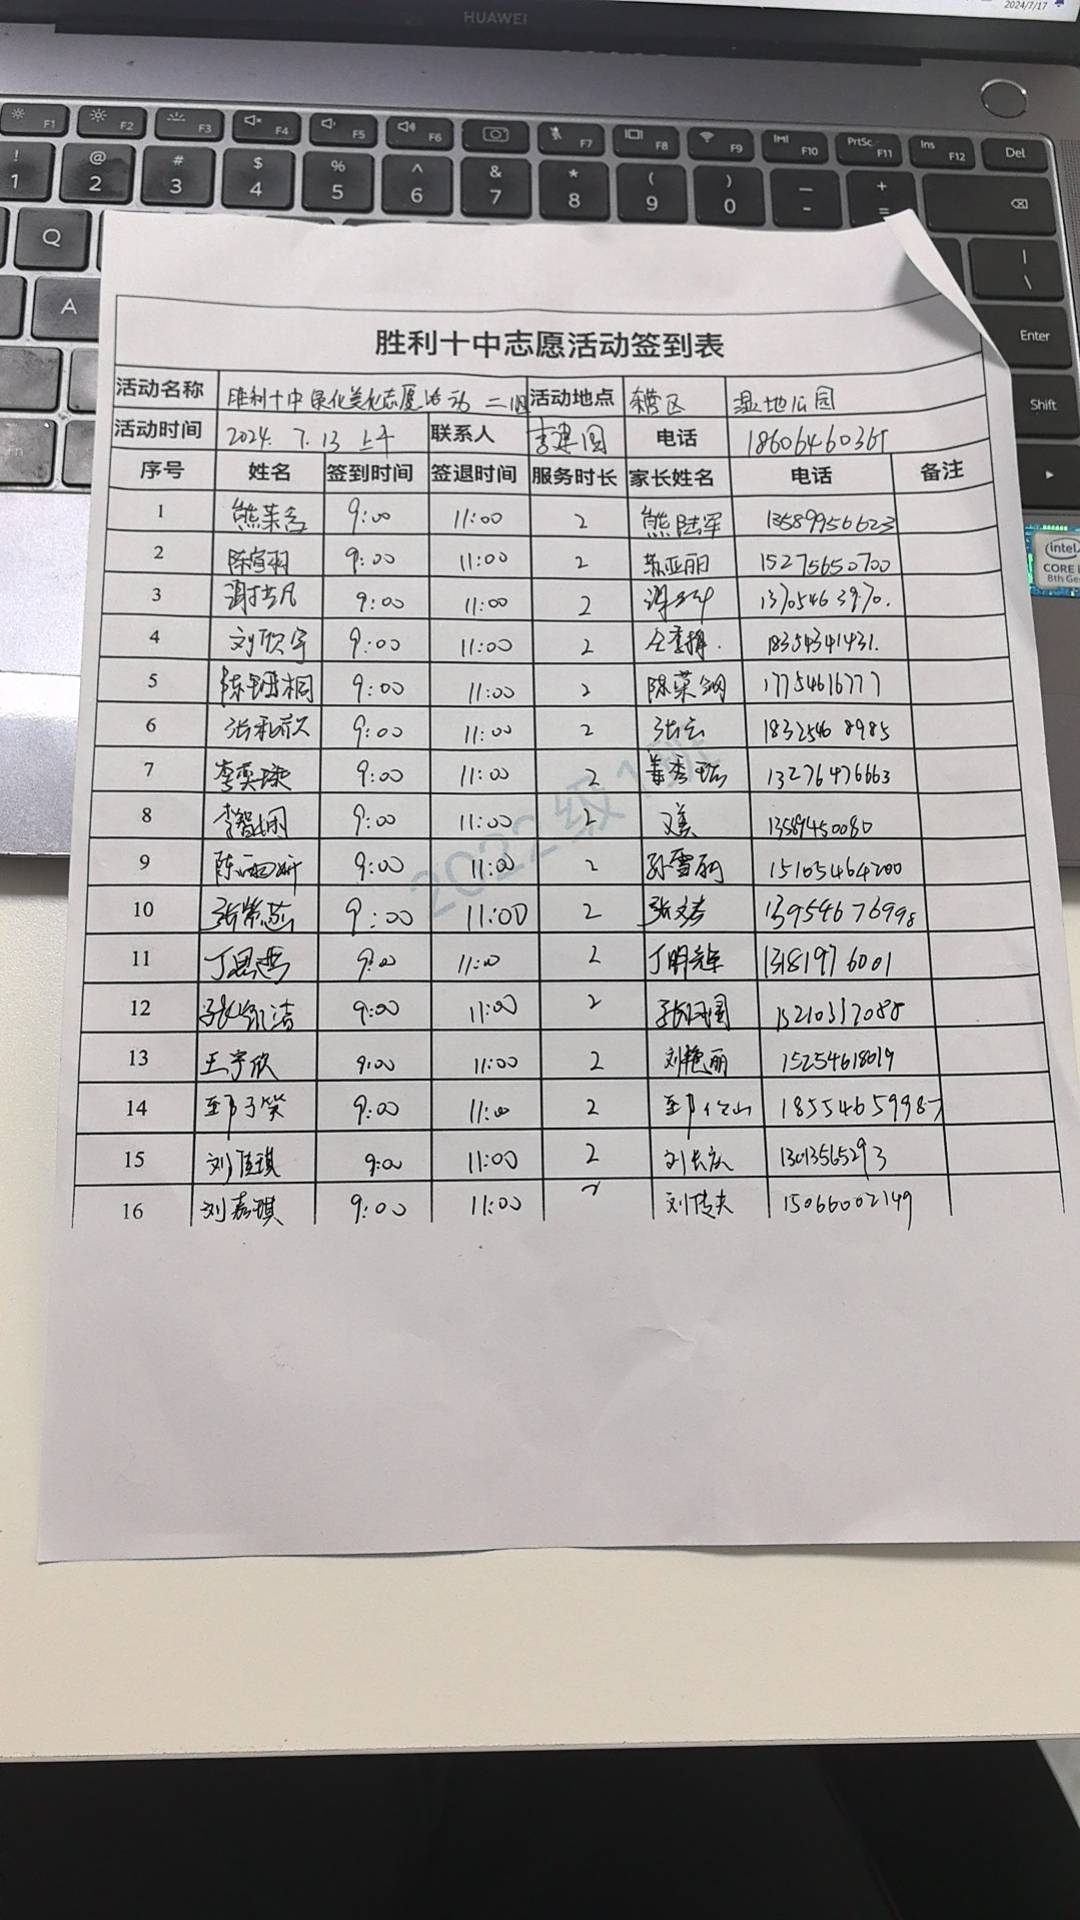 2024/7/17
HUAWEI
F1 F2 F3 F4 F5 F6 F7 F8 F9 F10 PrtSc F11 Ins F12 Del
! 1 @ 2 # 3 $ 4 % 5 ^ 6 & 7 * 8 ( 9 ) 0 - + =
Q | \
A Enter
Shift
Fn
intel CORE i 8th Ge
胜利十中志愿活动签到表
活动名称 胜利十中绿化美化志愿活动 活动地点 辖区 湿地公园
活动时间 2024. 7. 13 上午 联系人 李建国 电话
序号 姓名 签到时间 签退时间 服务时长 家长姓名 电话 备注
1 9:00 11:00 2 熊陆军 13589956623
2 9:00 11:00 2 苏亚丽 15275650700
3 9:00 11:00 2 13705463970.
4 刘欣宇 9:00 11:00 2 18354341431.
5 9:00 11:00 2 17754616777
6 9:00 11:00 2 张云 18325468985
7 李奕璇 9:00 11:00 2 姜秀 13276476663
8 9:00 11:00 2 13589450080
9 陈雨妍 9:00 11:00 2 孙雪丽 15105464200
10 9:00 11:00 2 13954676998
11 丁思燕 9:00 11:00 2 丁明辉 13181976001
12 张凯洁 9:00 11:00 2 15210317088
13 王宇欣 9:00 11:00 2 刘艳丽 15254618019
14 9:00 11:00 2 18554659987
15 刘佳琪 9:00 11:00 2 刘长庆 13013565293
16 刘嘉琪 9:00 11:00 2 刘传夫 15066002149
2022级1班